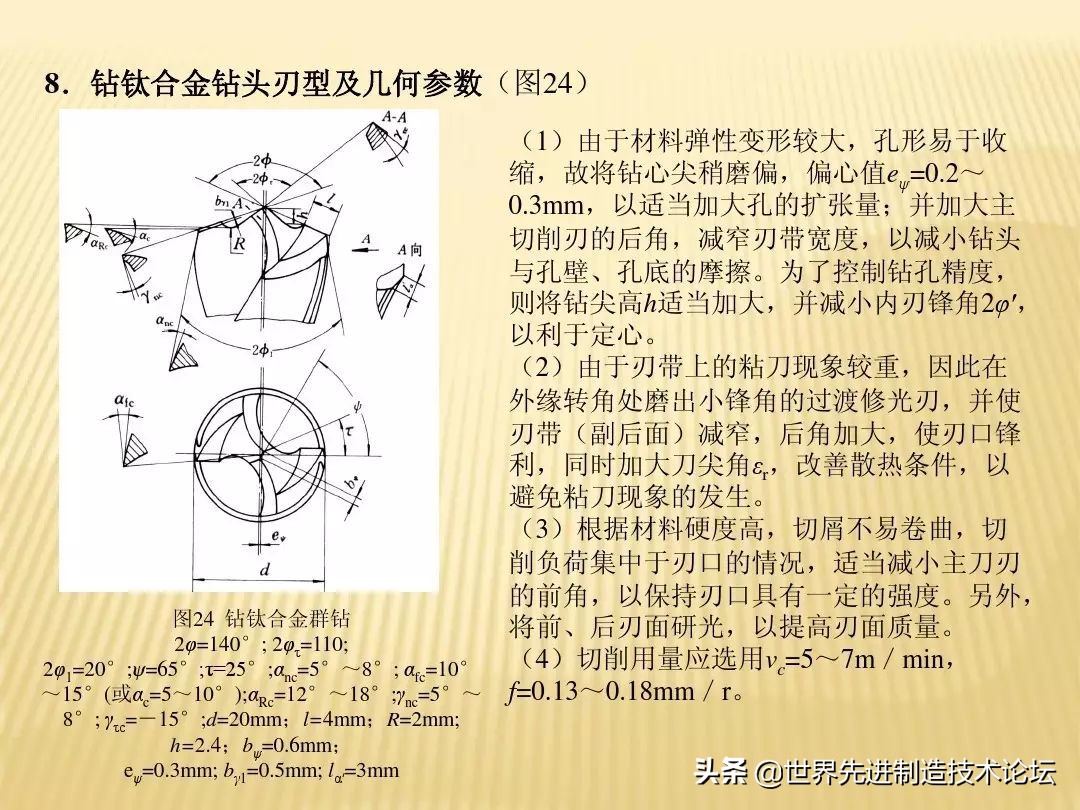 8．钻钛合金钻头刃型及几何参数（图24）
A-A
γτc
2ϕ
2ϕτ
bγ1
A
l
h
R
αRc
αc
γnc
A
A向
lα
αnc
2ϕ1
αfc
ψ
τ
bψ
eψ
d
图24 钻钛合金群钻
2φ=140°; 2φτ=110;
2φ1=20°;ψ=65°;τ=25°;αnc=5°～8°; αfc=10°
～15°(或αc=5～10°);αRc=12°～18°;γnc=5°～
8°; γτc=－15°;d=20mm；l=4mm；R=2mm;
h=2.4；bψ=0.6mm；
eψ=0.3mm; bγ1=0.5mm; lα=3mm
（1）由于材料弹性变形较大，孔形易于收
缩，故将钻心尖稍磨偏，偏心值eψ=0.2～
0.3mm，以适当加大孔的扩张量；并加大主
切削刃的后角，减窄刃带宽度，以减小钻头
与孔壁、孔底的摩擦。为了控制钻孔精度，
则将钻尖高h适当加大，并减小内刃锋角2φ′，
以利于定心。
（2）由于刃带上的粘刀现象较重，因此在
外缘转角处磨出小锋角的过渡修光刃，并使
刃带（副后面）减窄，后角加大，使刃口锋
利，同时加大刀尖角εr，改善散热条件，以
避免粘刀现象的发生。
（3）根据材料硬度高，切屑不易卷曲，切
削负荷集中于刃口的情况，适当减小主刀刃
的前角，以保持刃口具有一定的强度。另外，
将前、后刃面研光，以提高刃面质量。
（4）切削用量应选用vc=5～7m／min，
f=0.13～0.18mm／r。
头条 @世界先进制造技术论坛